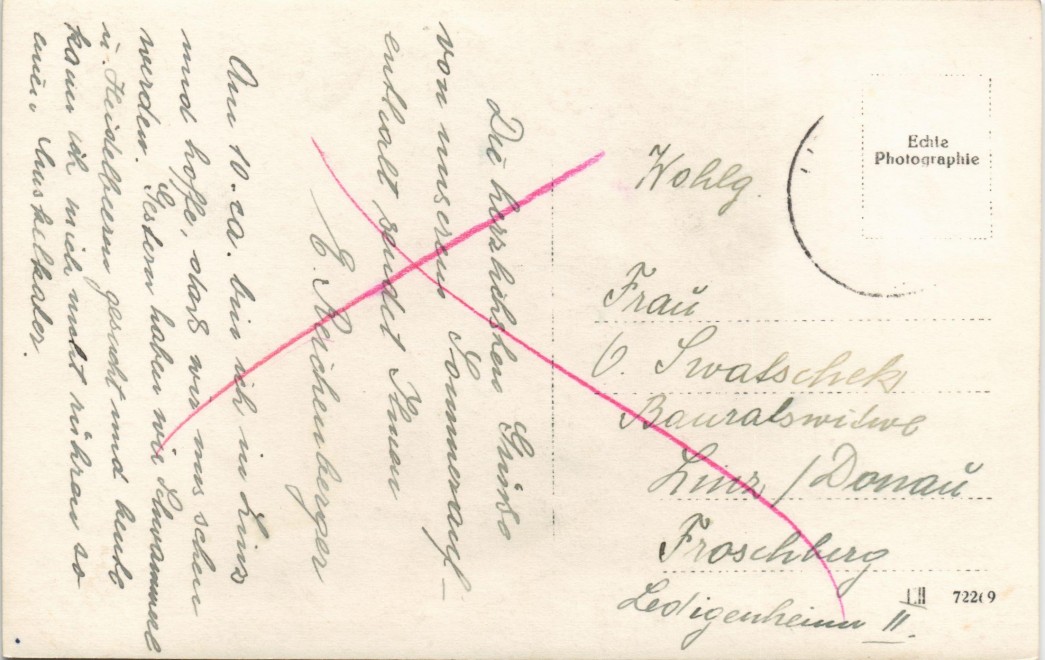 Die herzlichsten Grüße
von unserem Sommerauf-
enthalt sendet Ihnen
E. Reichenberger
Am 10. ca. bin ich in Linz
und hoffe, daß wir uns sehen
werden. Gestern haben wir Schwammerl
u. Heidelbeeren gesucht und heute
kann ich mich nicht rühren so
einen Muskelkater.
Wohlg.
Frau
O. Swatschek
Bauratswitwe
Linz / Donau
Froschberg
Ledigenheim II.
Echte
Photographie